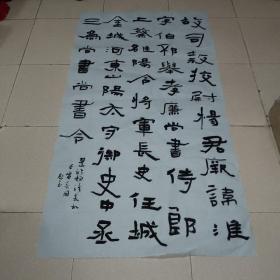 故司隸校尉楊君厥諱淮
字伯邳舉孝廉尚書侍郎
上蔡雒陽令將軍長史任城
金城河東山陽太守御史中丞
三為尚書尚書令